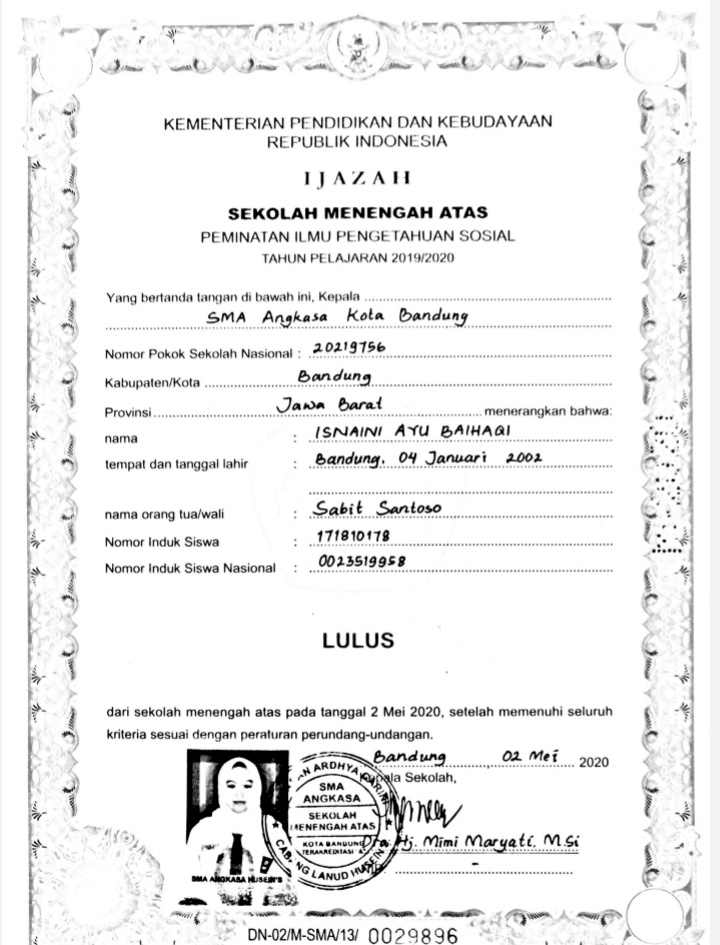 KEMENTERIAN PENDIDIKAN DAN KEBUDAYAAN
REPUBLIK INDONESIA
IJAZAH
SEKOLAH MENENGAH ATAS
PEMINATAN ILMU PENGETAHUAN SOSIAL
TAHUN PELAJARAN 2019/2020
Yang bertanda tangan di bawah ini, Kepala
SMA Angkasa Kota Bandung
Nomor Pokok Sekolah Nasional : 20219756
Kabupaten/Kota Bandung
Provinsi Jawa Barat menerangkan bahwa:
nama : ISNAINI AYU BAIHAQI
tempat dan tanggal lahir : Bandung, 04 Januari 2002
nama orang tua/wali : Sabit Santoso
Nomor Induk Siswa : 171810178
Nomor Induk Siswa Nasional : 0023519958
LULUS
dari sekolah menengah atas pada tanggal 2 Mei 2020, setelah memenuhi seluruh
kriteria sesuai dengan peraturan perundang-undangan.
Bandung, 02 Mei 2020
Kepala Sekolah,
SMA
ANGKASA
SEKOLAH
MENENGAH ATAS
KOTA BANDUNG
TERAKREDITASI A
CABANG LANUD HUSEIN
Dra. Hj. Mimi Maryati, M.Si
-
SMA ANGKASA HUSEIN'S
DN-02/M-SMA/13/ 0029896